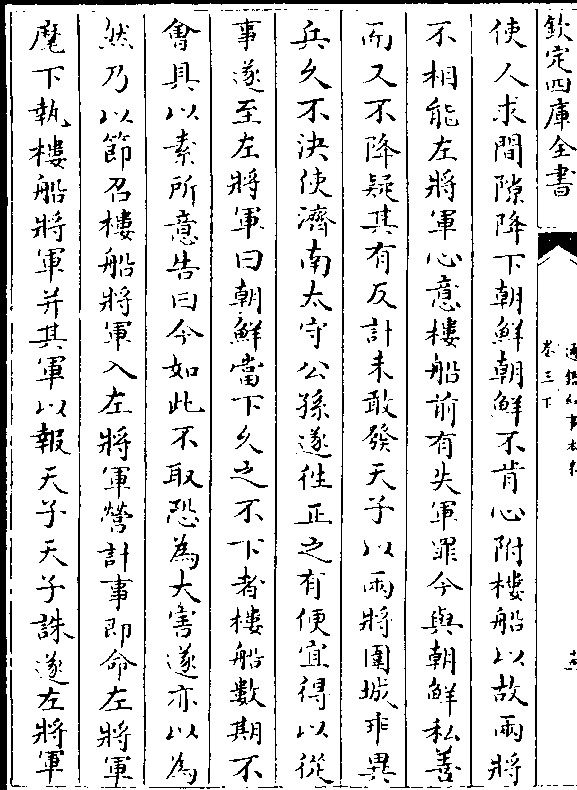 欽定四庫全書
通鑑紀事本末
卷三下
使人求間隙降下朝鮮朝鮮不肯心附樓船以故兩將
不相能左將軍心意樓船前有失軍罪今與朝鮮私善
而又不降疑其有反計未敢發天子以兩將圍城乖異
兵久不決使濟南太守公孫遂往正之有便宜得以從
事遂至左將軍曰朝鮮當下久之不下者樓船數期不
會具以素所意告曰今如此不取恐為大害遂亦以為
然乃以節召樓船將軍入左將軍營計事即命左將軍
麾下執樓船將軍并其軍以報天子天子誅遂左將軍